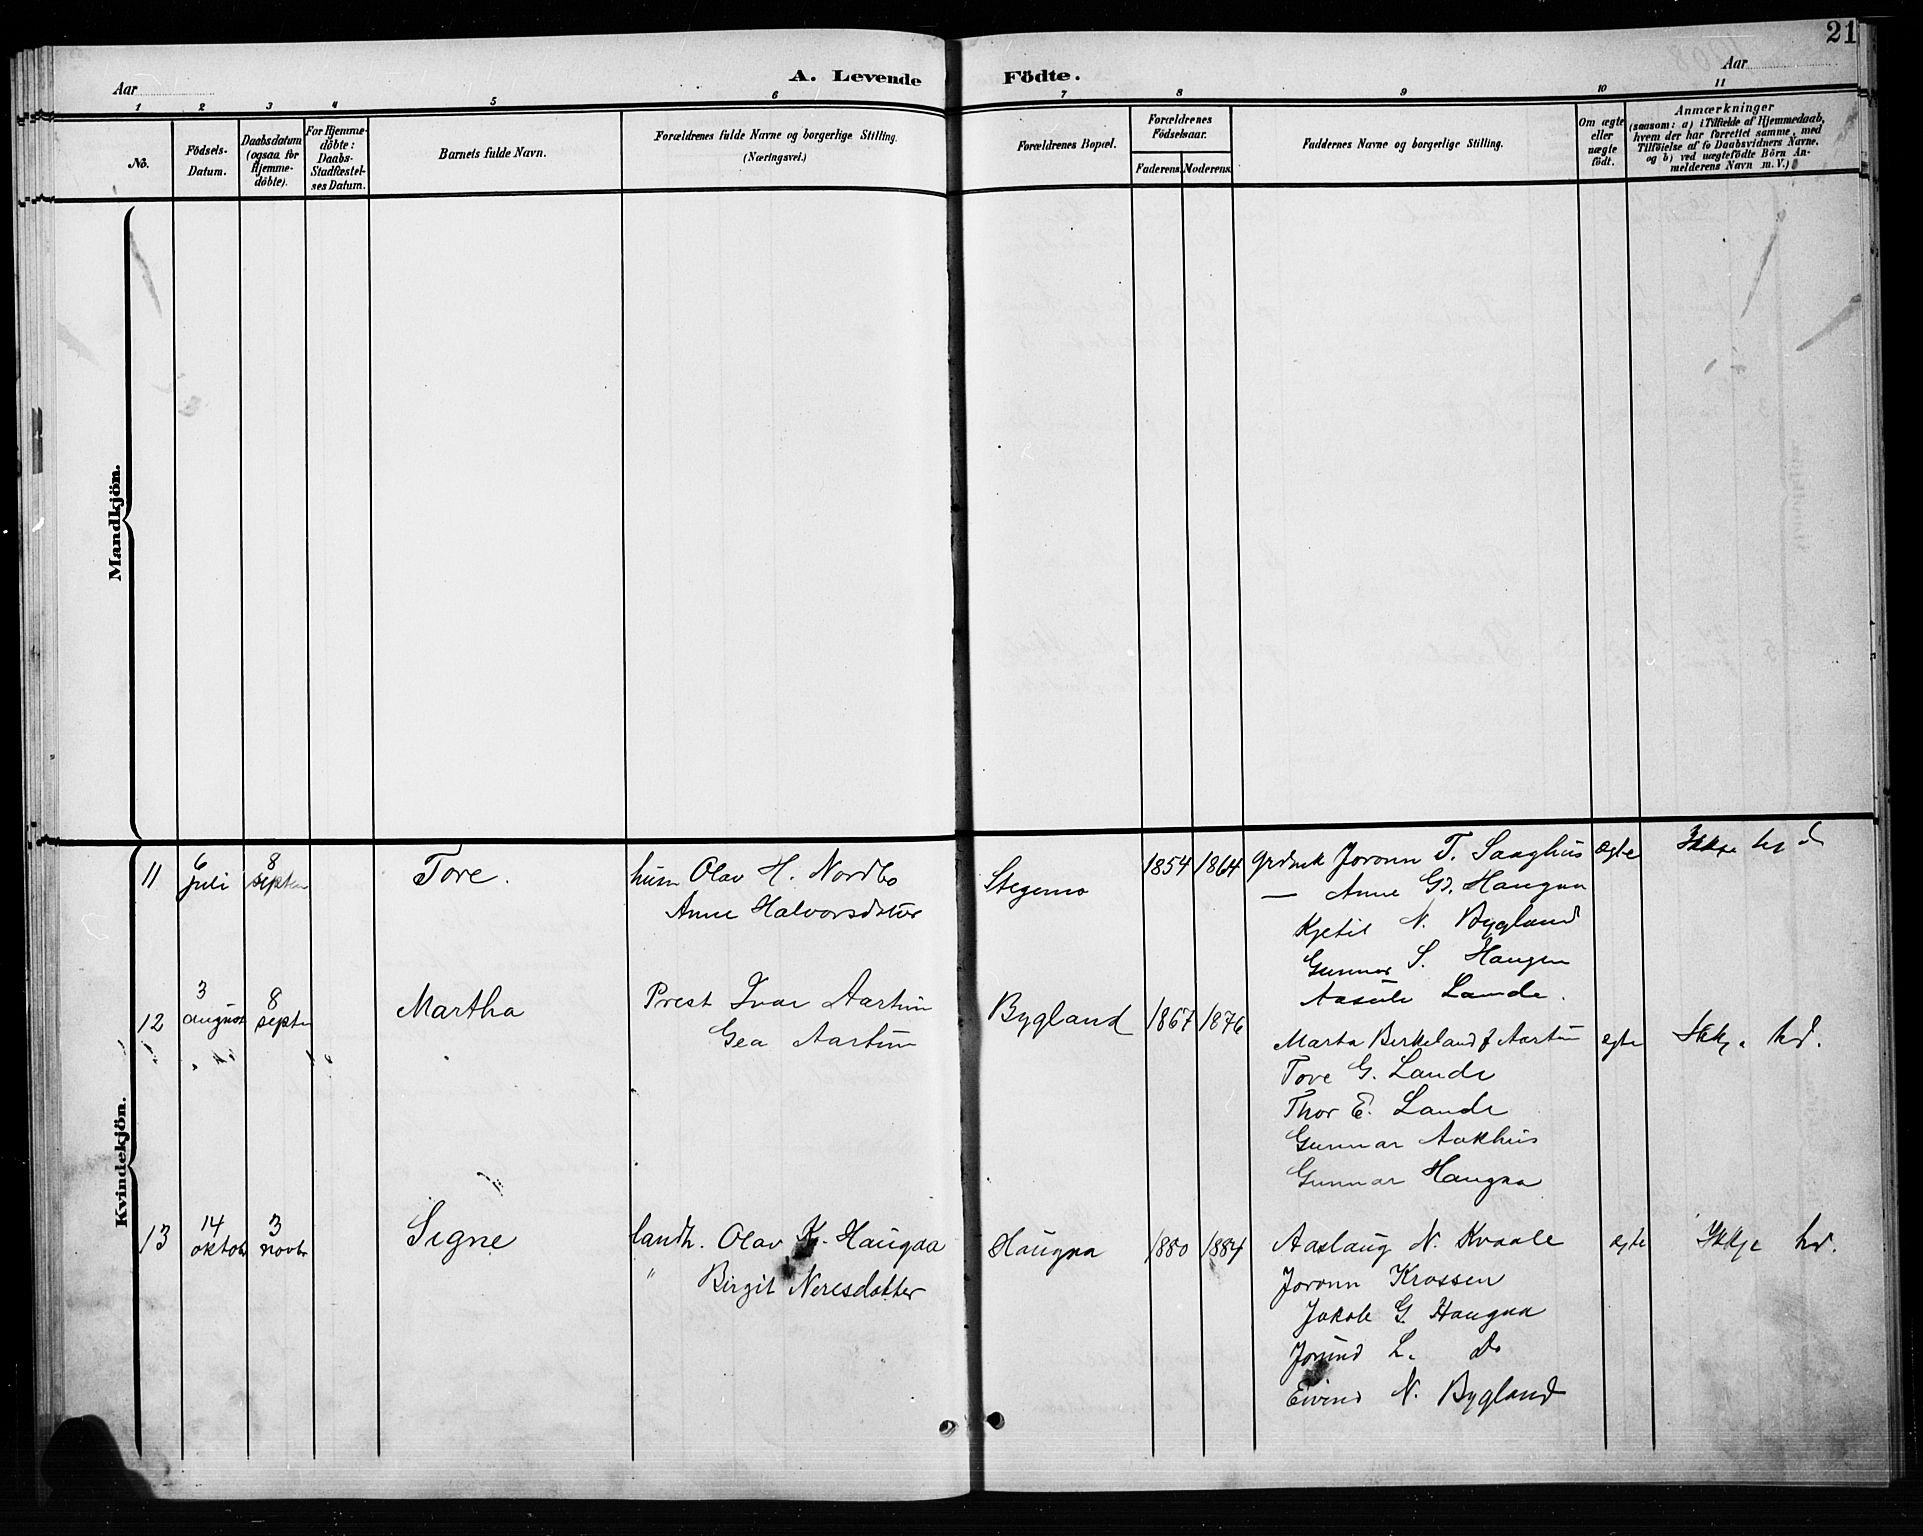 21
Aar
A. Levende Födte.
Aar
1 2 3 4 5 6 7 8 9 10 11
No.
Födsels-
Datum.
Daabsdatum
(ogsaa for
Hjemme-
döbte).
For Hjemme-
döbte:
Daabs-
Stadfæstel-
ses Datum.
Barnets fulde Navn.
Forældrenes fulde Navne og borgerlige Stilling.
(Næringsvei.)
Forældrenes Bopæl.
Forældrenes
Födselsaar.
Faderens. Moderens.
Faddernes Navne og borgerlige Stilling.
Om ægte
eller
uægte
födt.
Anmærkninger
(saasom: a) i Tilfælde af Hjemmedaab,
hvem der har forrettet samme, med
Tilföielse af to Daabsvidners Navne.
og b) ved uægtefödte Börn An-
melderens Navn m. V.)
Mandkjön.
Kvindekjön.
11
6
juli
8
septer
Tore.
husm Olav H. Nordbo
Anne Halvorsdotter
Stegemo
1854 1864
Joronn T. Saaghus
— Anne G. Haugaa
Kjetil N. Bygland
Gunnar S. Haugen
Aasule Lande.
ægte
Ikkje
12
3
august
8
septer
Martha
Prest Ivar Aartun
Gea Aartun
Bygland
1867 1876
Marta Berkeland f Aartun
Tove G. Lande
Thor E. Lande
Gunnar Aakhus
Gunnar Haugaa
ægte
Ikkje hd.
13
14
oktob
3
novbr
Signe
landh. Olav K. Haugaa
" Birgit Neresdotter
Haugaa
1880 1884
Aaslaug N. Kvaale
Joronn Krossen
Jakob G. Haugaa
Jorund L. Do
Eivind N. Bygland
ægte
Ikkje hd.